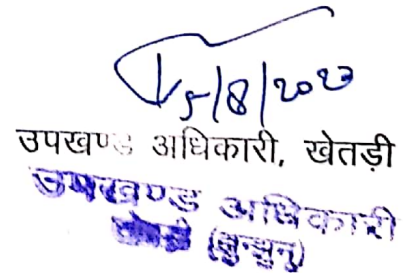 5/8/2023
उपखण्ड अधिकारी, खेतड़ी
उपखण्ड अधिकारी
खेतड़ी (झुन्झुनू)